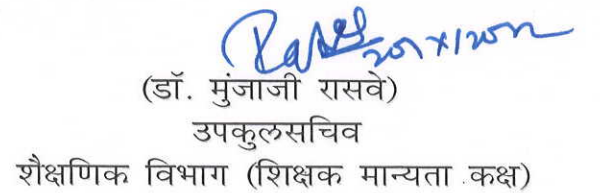 (डॉ. मुंजाजी रासवे)
उपकुलसचिव
शैक्षणिक विभाग (शिक्षक मान्यता कक्ष)